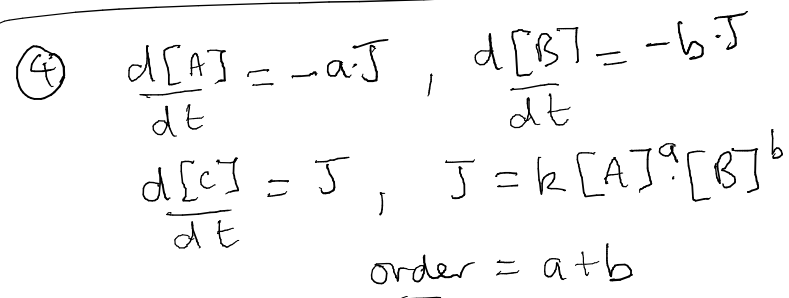 ④ d[A]/dt = -a·J , d[B]/dt = -b·J
d[C]/dt = J , J = k[A]^a·[B]^b
order = a+b